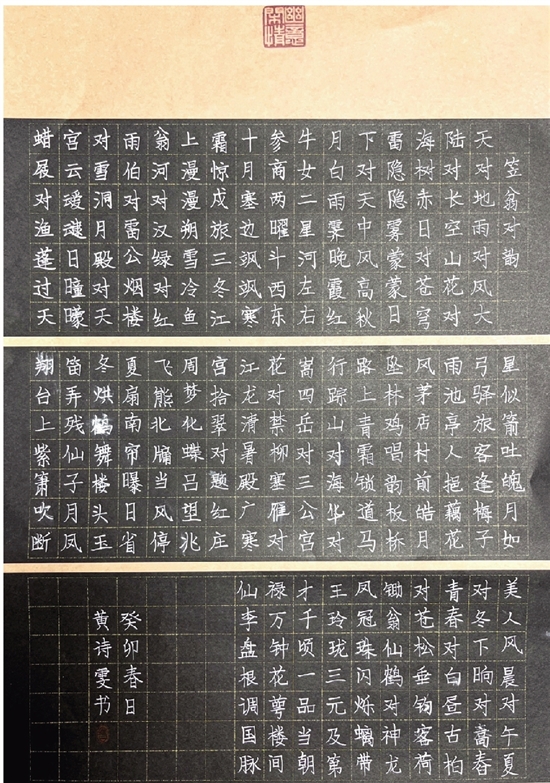 幽意閒情
笠翁对韵
天对地雨对风大
陆对长空山花对
海树赤日对苍穹
雷隐隐雾蒙蒙日
下对天中风高秋
月白雨霁晚霞红
牛女二星河左右
参商两曜斗西东
十月塞边飒飒寒
霜惊戍旅三冬江
上漫漫朔雪冷鱼
翁河对汉绿对红
雨伯对雷公烟楼
对雪洞月殿对天
宫云叆叇日曈曚
蜡屐对渔蓬过天
星似箭吐魄月如
弓驿旅客逢梅子
雨池亭人挹藕花
风茅店村前皓月
坠林鸡唱韵板桥
路上青霜锁道马
行踪山对海华对
嵩四岳对三公宫
花对禁柳塞雁对
江龙清暑殿广寒
宫拾翠对题红庄
周梦化蝶吕望兆
飞熊北牖当风停
夏扇南帘曝日省
冬烘鹤舞楼头玉
笛弄残仙子月凤
翔台上紫箫吹断
美人风晨对午夏
对冬下晌对高舂
青春对白昼古柏
对苍松垂钓客荷
锄翁仙鹤对神龙
凤冠珠闪烁螭带
玉玲珑三元及第
才千顷一品当朝
禄万钟花萼楼间
仙李盘根调国脉
癸卯春日
黄诗雯书